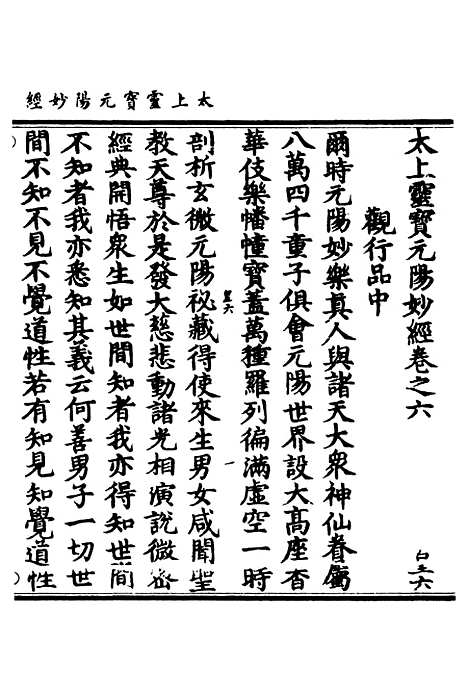 太上靈寳元陽妙經
太上靈寶元陽妙經卷之六
觀行品中
爾時元陽妙樂真人與諸天大衆神仙眷屬
八萬四千童子俱會元陽世界設大髙座香
華伎樂幡幢寶蓋萬種羅列徧滿虛空一時
剖析玄微元陽祕藏得使來生男女咸聞聖
教天尊於是發大慈悲動諸光相演說微密
經典開悟衆生如世間知者我亦得知世間
不知者我亦悉知其義云何善男子一切世
間不知不見不覺道性若有知見知覺道性